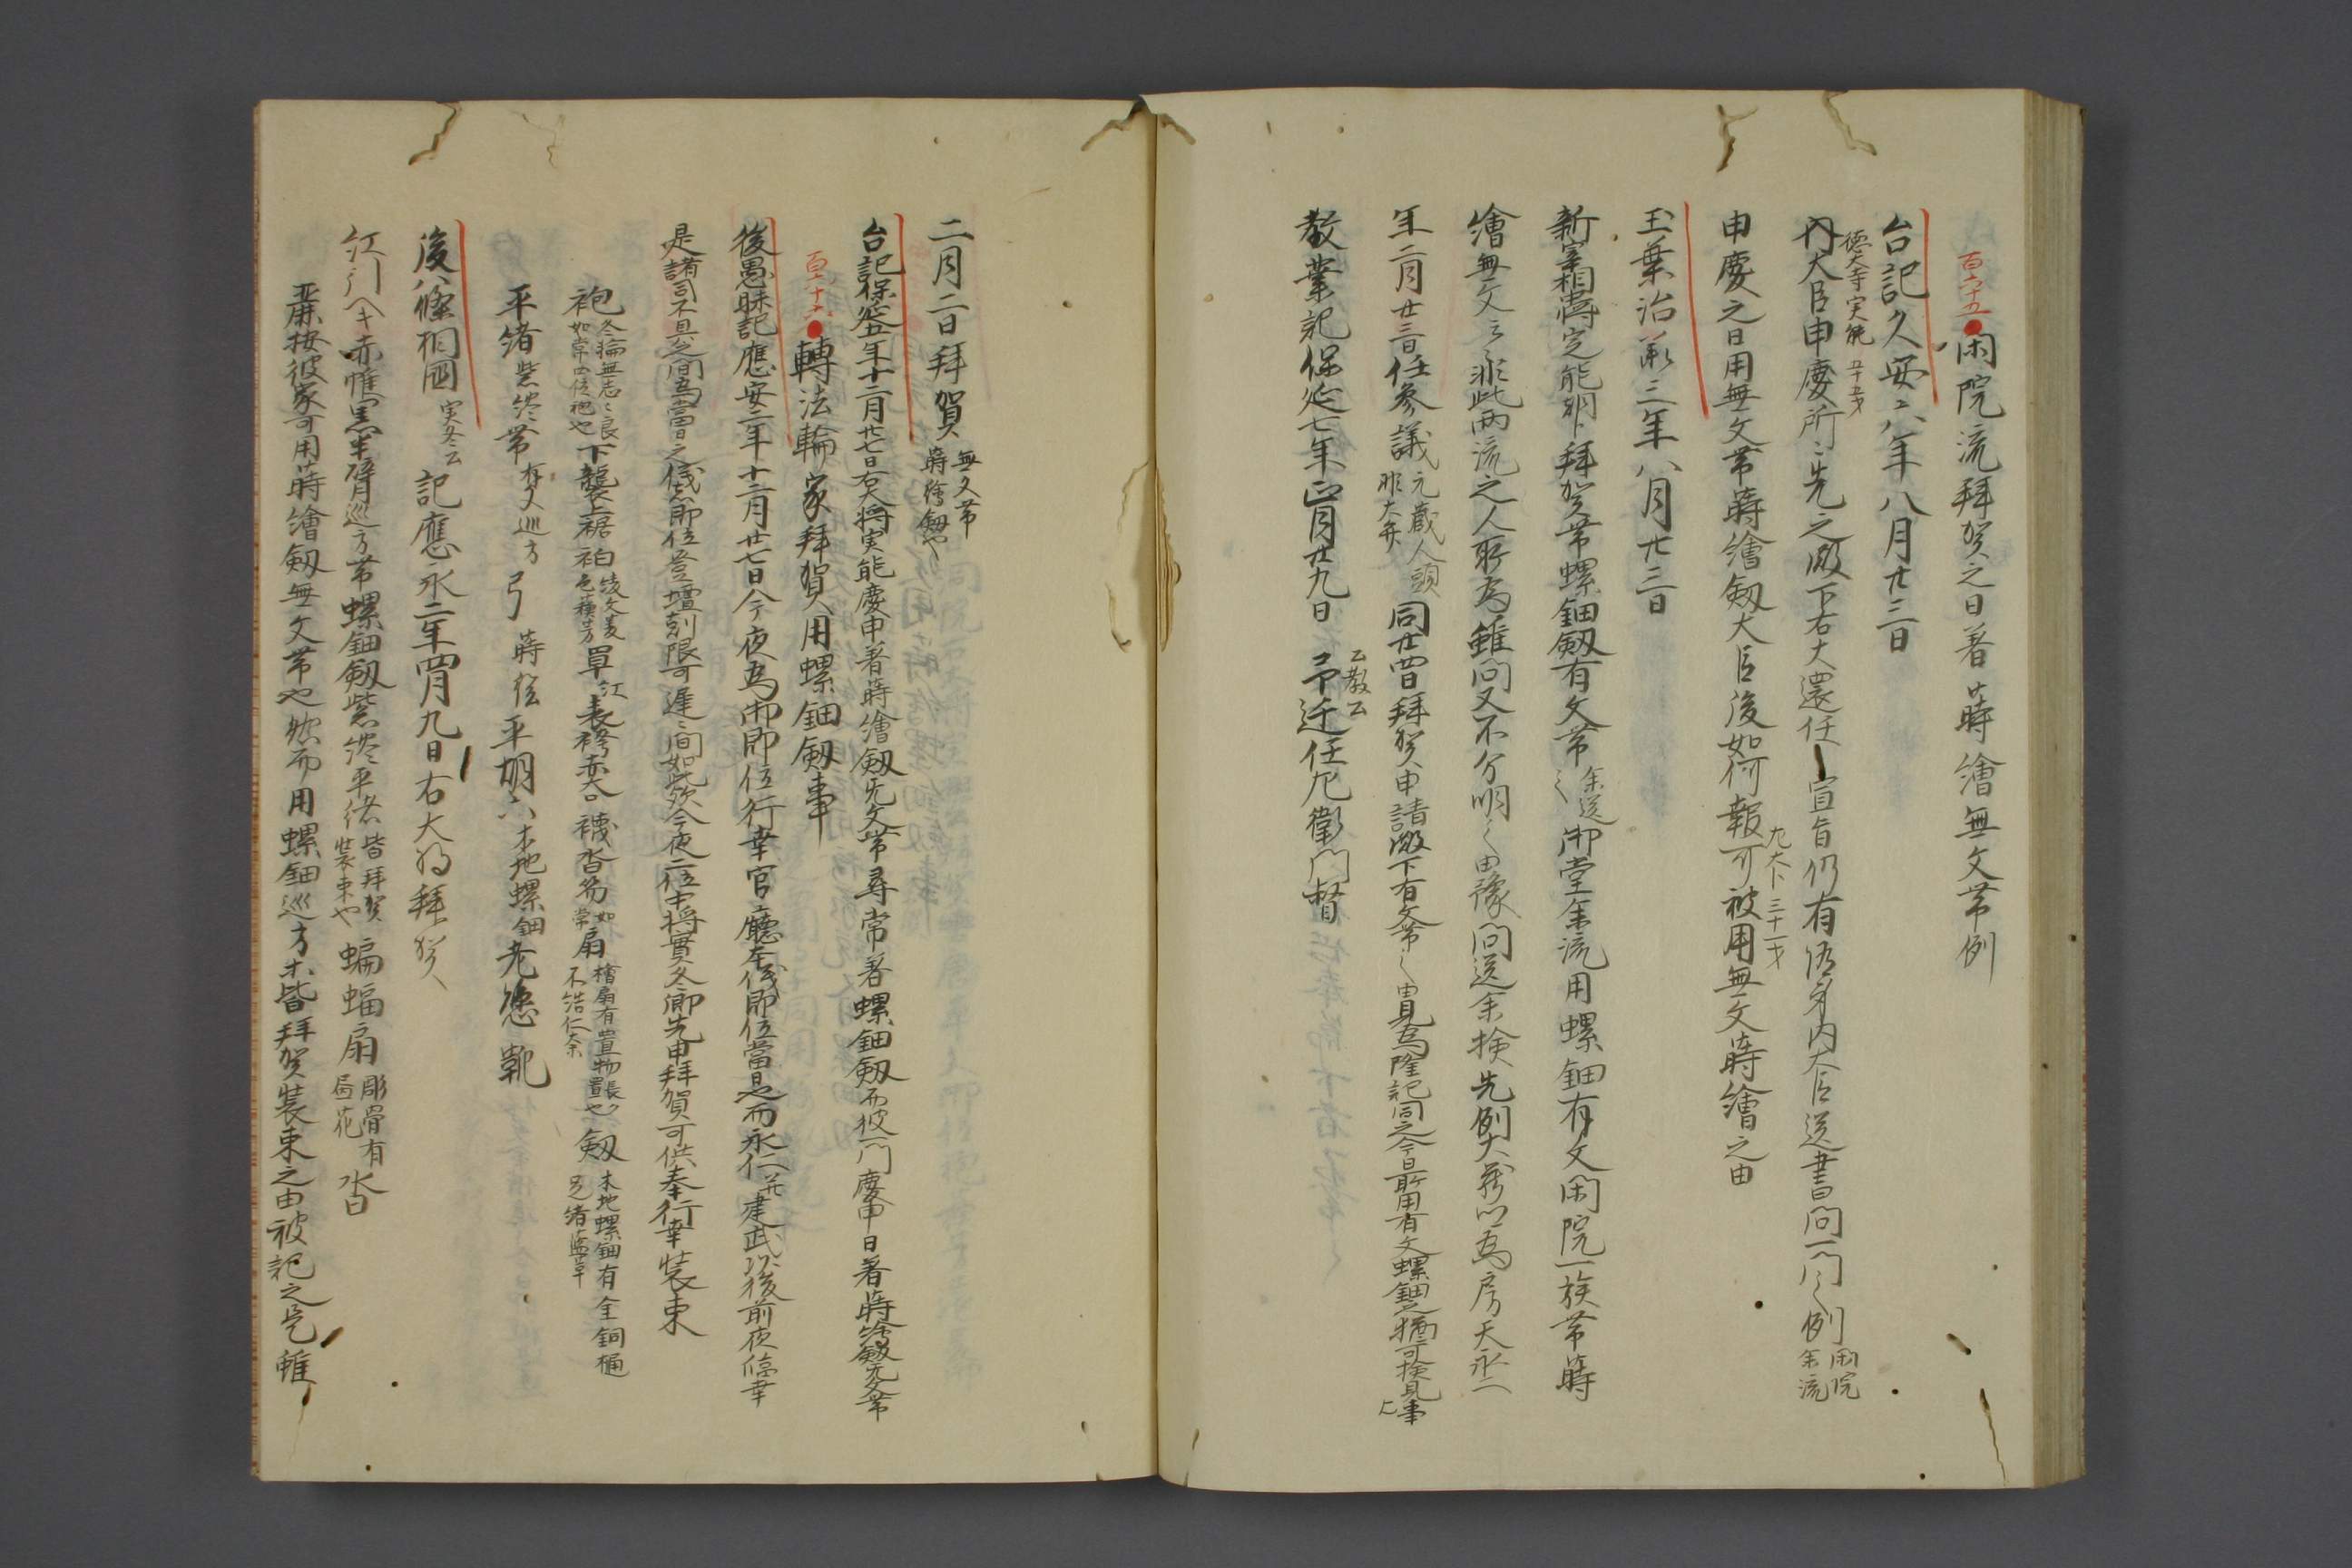 百六十五●閑院流拜賀之日著蒔繪無文帶例
台記久安六年八月廿三日
德大寺実能 五十五才
内大臣申慶所々先之殿下右大還任宣旨仍有
内大臣送書問一門之例 閑院余流
申慶之日用無文帶蒔繪劔大臣後如何報可被用無文蒔繪之由
九大下 三十一才
玉葉治承三年八月廿三日
新宰相中将定能卿拜賀帶螺鈿劔有文帶 余送之 御堂余流用螺鈿有文閑院一族帶蒔
繪無文云非此両流之人所為雖問又不分明之由豫問送余検先例大蔵卿為房天永二
年二月廿三日任參議 元蔵人頭非大弁 同廿四日拜賀申請殿下有文帶之由見為隆記同之今日所用有文螺鈿也猶可検見事上
教業記保延七年正月廿九日 予 乙教云 遷任左衛門督
二月二日拜賀 無文帶蒔繪劔也
台記保延五年十二月廿七日右大将実能慶申著蒔繪劔无文帶尋常著螺鈿劔而彼一門慶申日著蒔繪劔无文帶
百六十六●轉法輪家拜賀用螺鈿劔事
後愚昧記應安二年十二月廿七日今夜為御即位行幸官廳本儀即位當日是而永仁并建武以後前夜臨幸
是諸司不具之間為當日之儀即位登壇剋限可遲々間如此歟今夜二位中将實冬卿先申拜賀可供奉行幸装束
袍 冬 輪無志々良如常四位袍也 下襲上裾 袙 綾文菱色蘓芳 單 紅 表袴 大口 襪沓笏 如常 扇 檜扇有置物畳也不結仁奈 劔 木地螺鈿有金銅樋足緒藍革
平緒 紫終 帶 有文巡方 弓 蒔絵 平胡六 木地螺鈿 老懸 靴
後八條相國 実冬公 記應永二年四月九日右大将拜賀
紅引ヘキ赤帷黒半臂巡方帶螺鈿劔紫終平緒 皆拜賀装束也 蝙蝠扇 彫骨有居花 沓
兼按彼家可用蒔繪劔無文帶也然而用螺鈿巡方等皆拜賀装束之由被記之畢雖